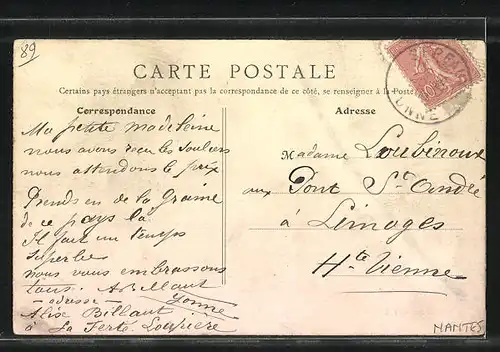 89
CARTE POSTALE
Certains pays étrangers n'acceptant pas la correspondance de ce côté, se renseigner à la Poste
Correspondance
Adresse
Ma petite madeleine
nous avons reçu les souliers
nous attendons le prix
Prends en de la Graine
de ce pays là
Il fait un temps
superbe
nous vous embrassons
tous. A Billaut
adresse Yonne
Alix Billaut
à La Ferté Loupière
Madame Loubinoux
aux Pont St André
à Limoges
Hte Vienne
NANTES